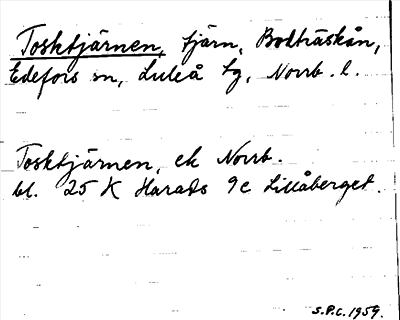 Tosktjärnen, tjärn, Bodträskån,
Edefors sn, Luleå tg, Norrb. l.
Tosktjärnen, ek Norrb.
bl. 25 K Harads 9e Lillåberget.
S.P.C. 1959.